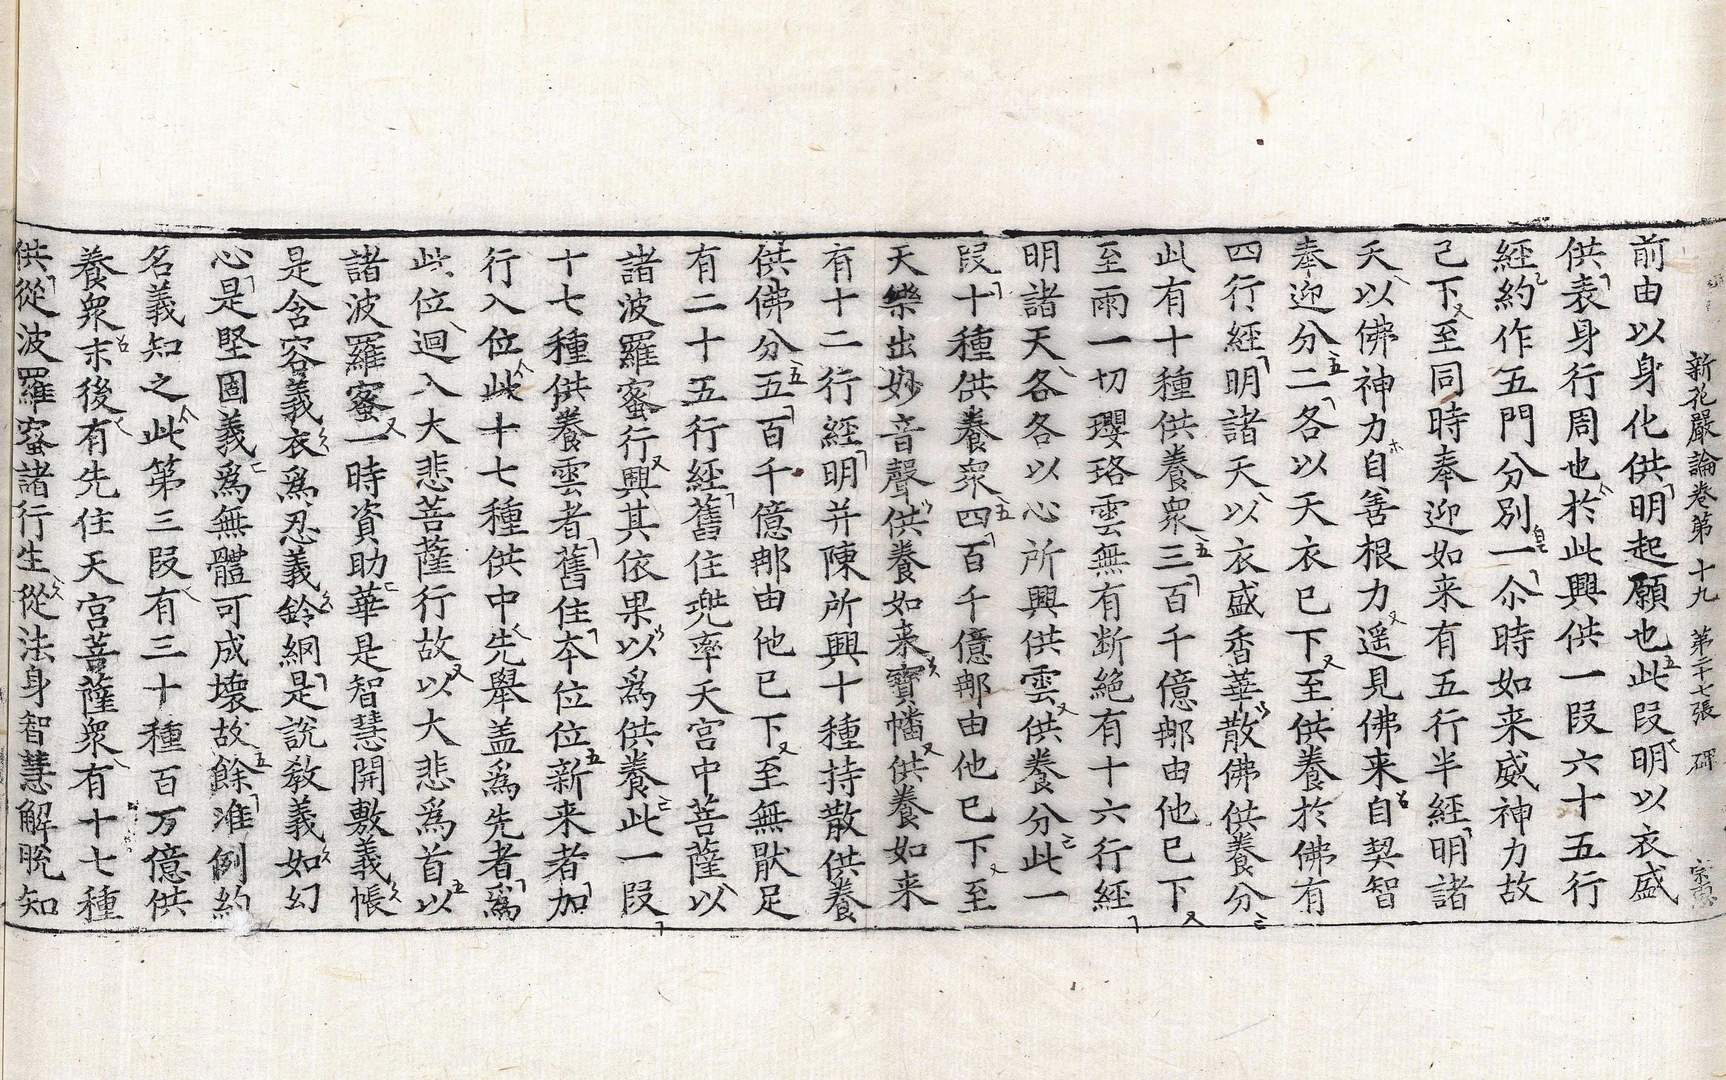 新花嚴論卷第十九　第二十七張　碑　宗惠
前由以身化供明起願也此段明以衣盛
供表身行周也於此興供一段六十五行
經約作五門分別一尒時如来威神力故
已下至同時奉迎如来有五行半經明諸
天以佛神力自善根力遥見佛来自契智
奉迎分二各以天衣已下至供養於佛有
四行經明諸天以衣盛香華散佛供養分
此有十種供養衆三百千億那由他已下
至雨一切瓔珞雲無有断絶有十六行經
明諸天各各以心所興供雲供養分此一
段十種供養衆四百千億那由他已下至
天樂出妙音聲供養如来寶幡供養如来
有十二行經明并陳所興十種持散供養
供佛分五百千億那由他已下至無猒足
有二十五行經舊住兠率天宮中菩薩以
諸波羅蜜行興其依果以爲供養此一段
十七種供養雲者舊住夲位位新来者加
行入位此十七種供中先舉盖爲先者爲
此位迴入大悲菩薩行故以大悲爲首以
諸波羅蜜一時資助華是智慧開敷義帳
是含容義衣爲忍義鈴網是說教義如幻
心是堅固義爲無體可成壞故餘准例約
名義知之此第三段有三十種百万億供
養衆末後有先住天宮菩薩衆有十七種
供從波羅蜜諸行生從法身智慧解脫知